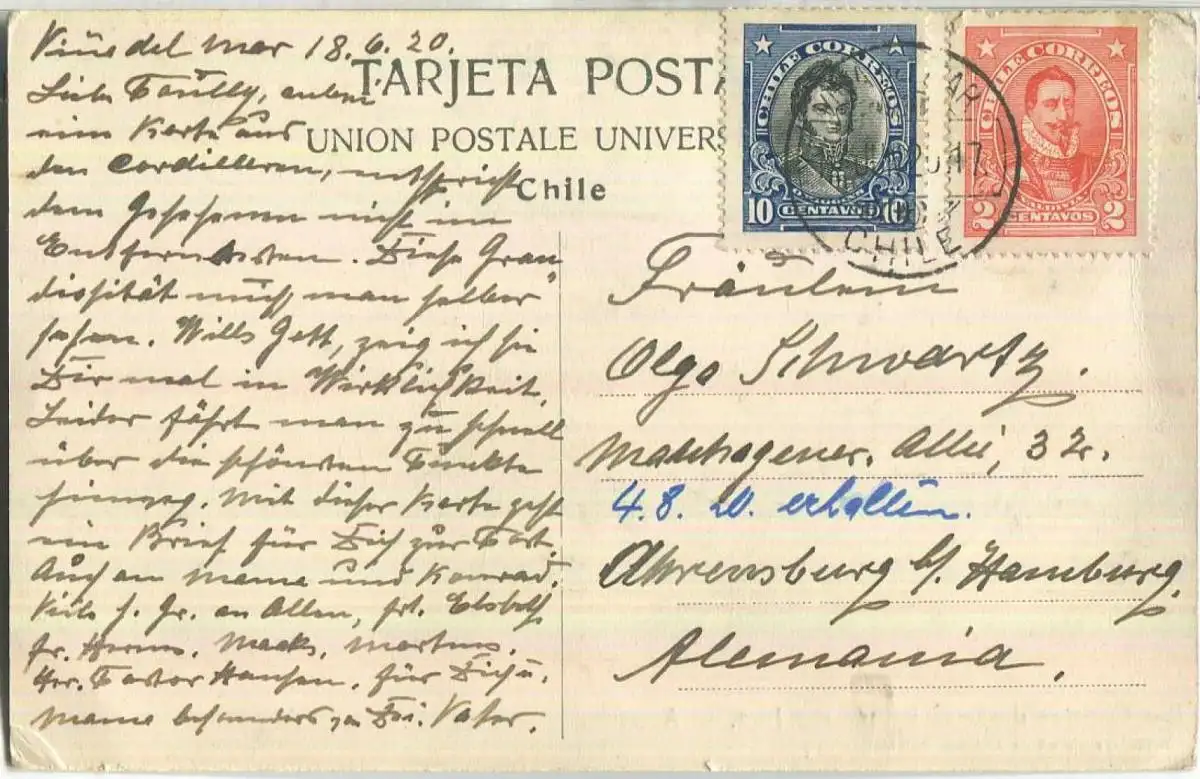 Viña del Mar 18.6.20.
Liebe Paully, anbei
eine Karte aus
den Cordilleren, entspricht
dem Gesehenen nicht im
Entferntesten. Diese Gran-
diosität muß man selber
sehen. Wills Gott, zeig ich sie
Dir mal in Wirklichkeit.
Leider fährt man zu schnell
über die schönsten Punkte
hinweg. Mit dieser Karte geht
ein Brief für Dich zur Post.
Auch an Mama und Konrad.
Viele h. Gr. an Allen, frl. Elsbeth
fr. Harms, Macks, Martens.
Her. Pastor Hansen. für Dich u.
Mama besonders Dein Vater.
TARJETA POSTA
UNION POSTALE UNIVERS
Chile
CHILE CORREOS
10 CENTAVOS 10
CHILE CORREOS
VALDIVIA
2 CENTAVOS 2
CHILE
Fräulein
Olga Schwartz.
Manhagener. Allee, 32.
4.8.20 erhalten.
Ahrensburg b/ Hamburg.
Alemania.